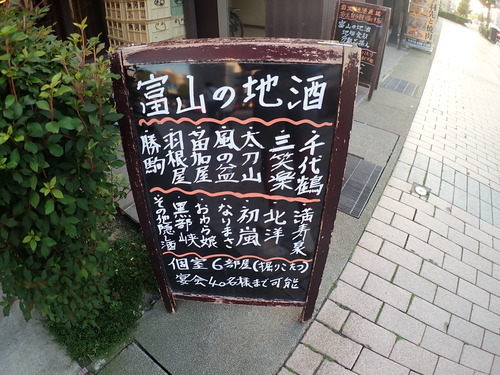 富山の地酒
・千代鶴
・三笑楽
・太刀山
・風の盆
・苗加屋
・羽根屋
・勝駒
・満寿泉
・北洋
・初嵐
・なりまさ
・おわら娘
・黒部峡
・その他隠し酒
個室6部屋(掘りこたつ)
宴会40名様まで可能
富山の地酒